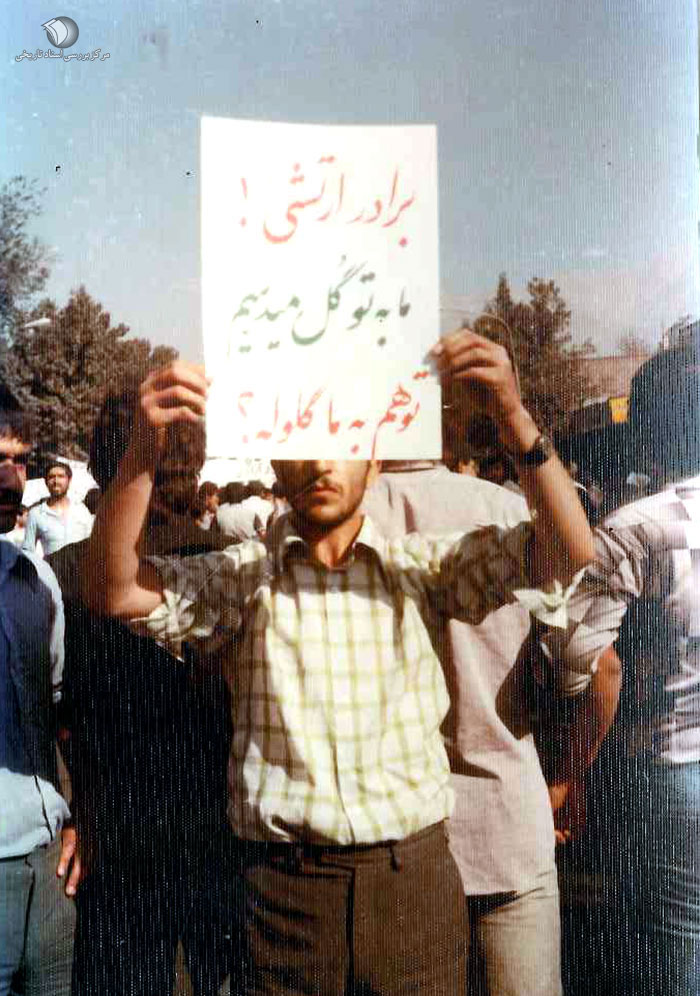 مرکز بررسی اسناد تاریخی
برادر ارتشی !
ما به تو گُل میدهیم
تو هم به ما گلوله ؟